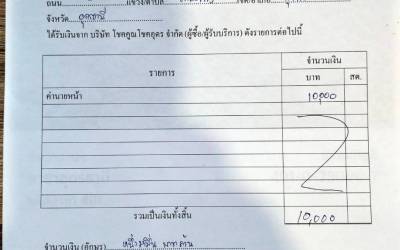 ถนน แขวง/ตำบล
จังหวัด อุดรธานี
ได้รับเงินจาก บริษัท โชคคูณโชคอุดร จำกัด (ผู้ซื้อ/ผู้รับบริการ) ดังรายการต่อไปนี้
รายการ จำนวนเงิน
บาท สต.
ค่านายหน้า 10,000
รวมเป็นเงินทั้งสิ้น 10,000
จำนวนเงิน (อักษร) หนึ่งหมื่นบาทถ้วน